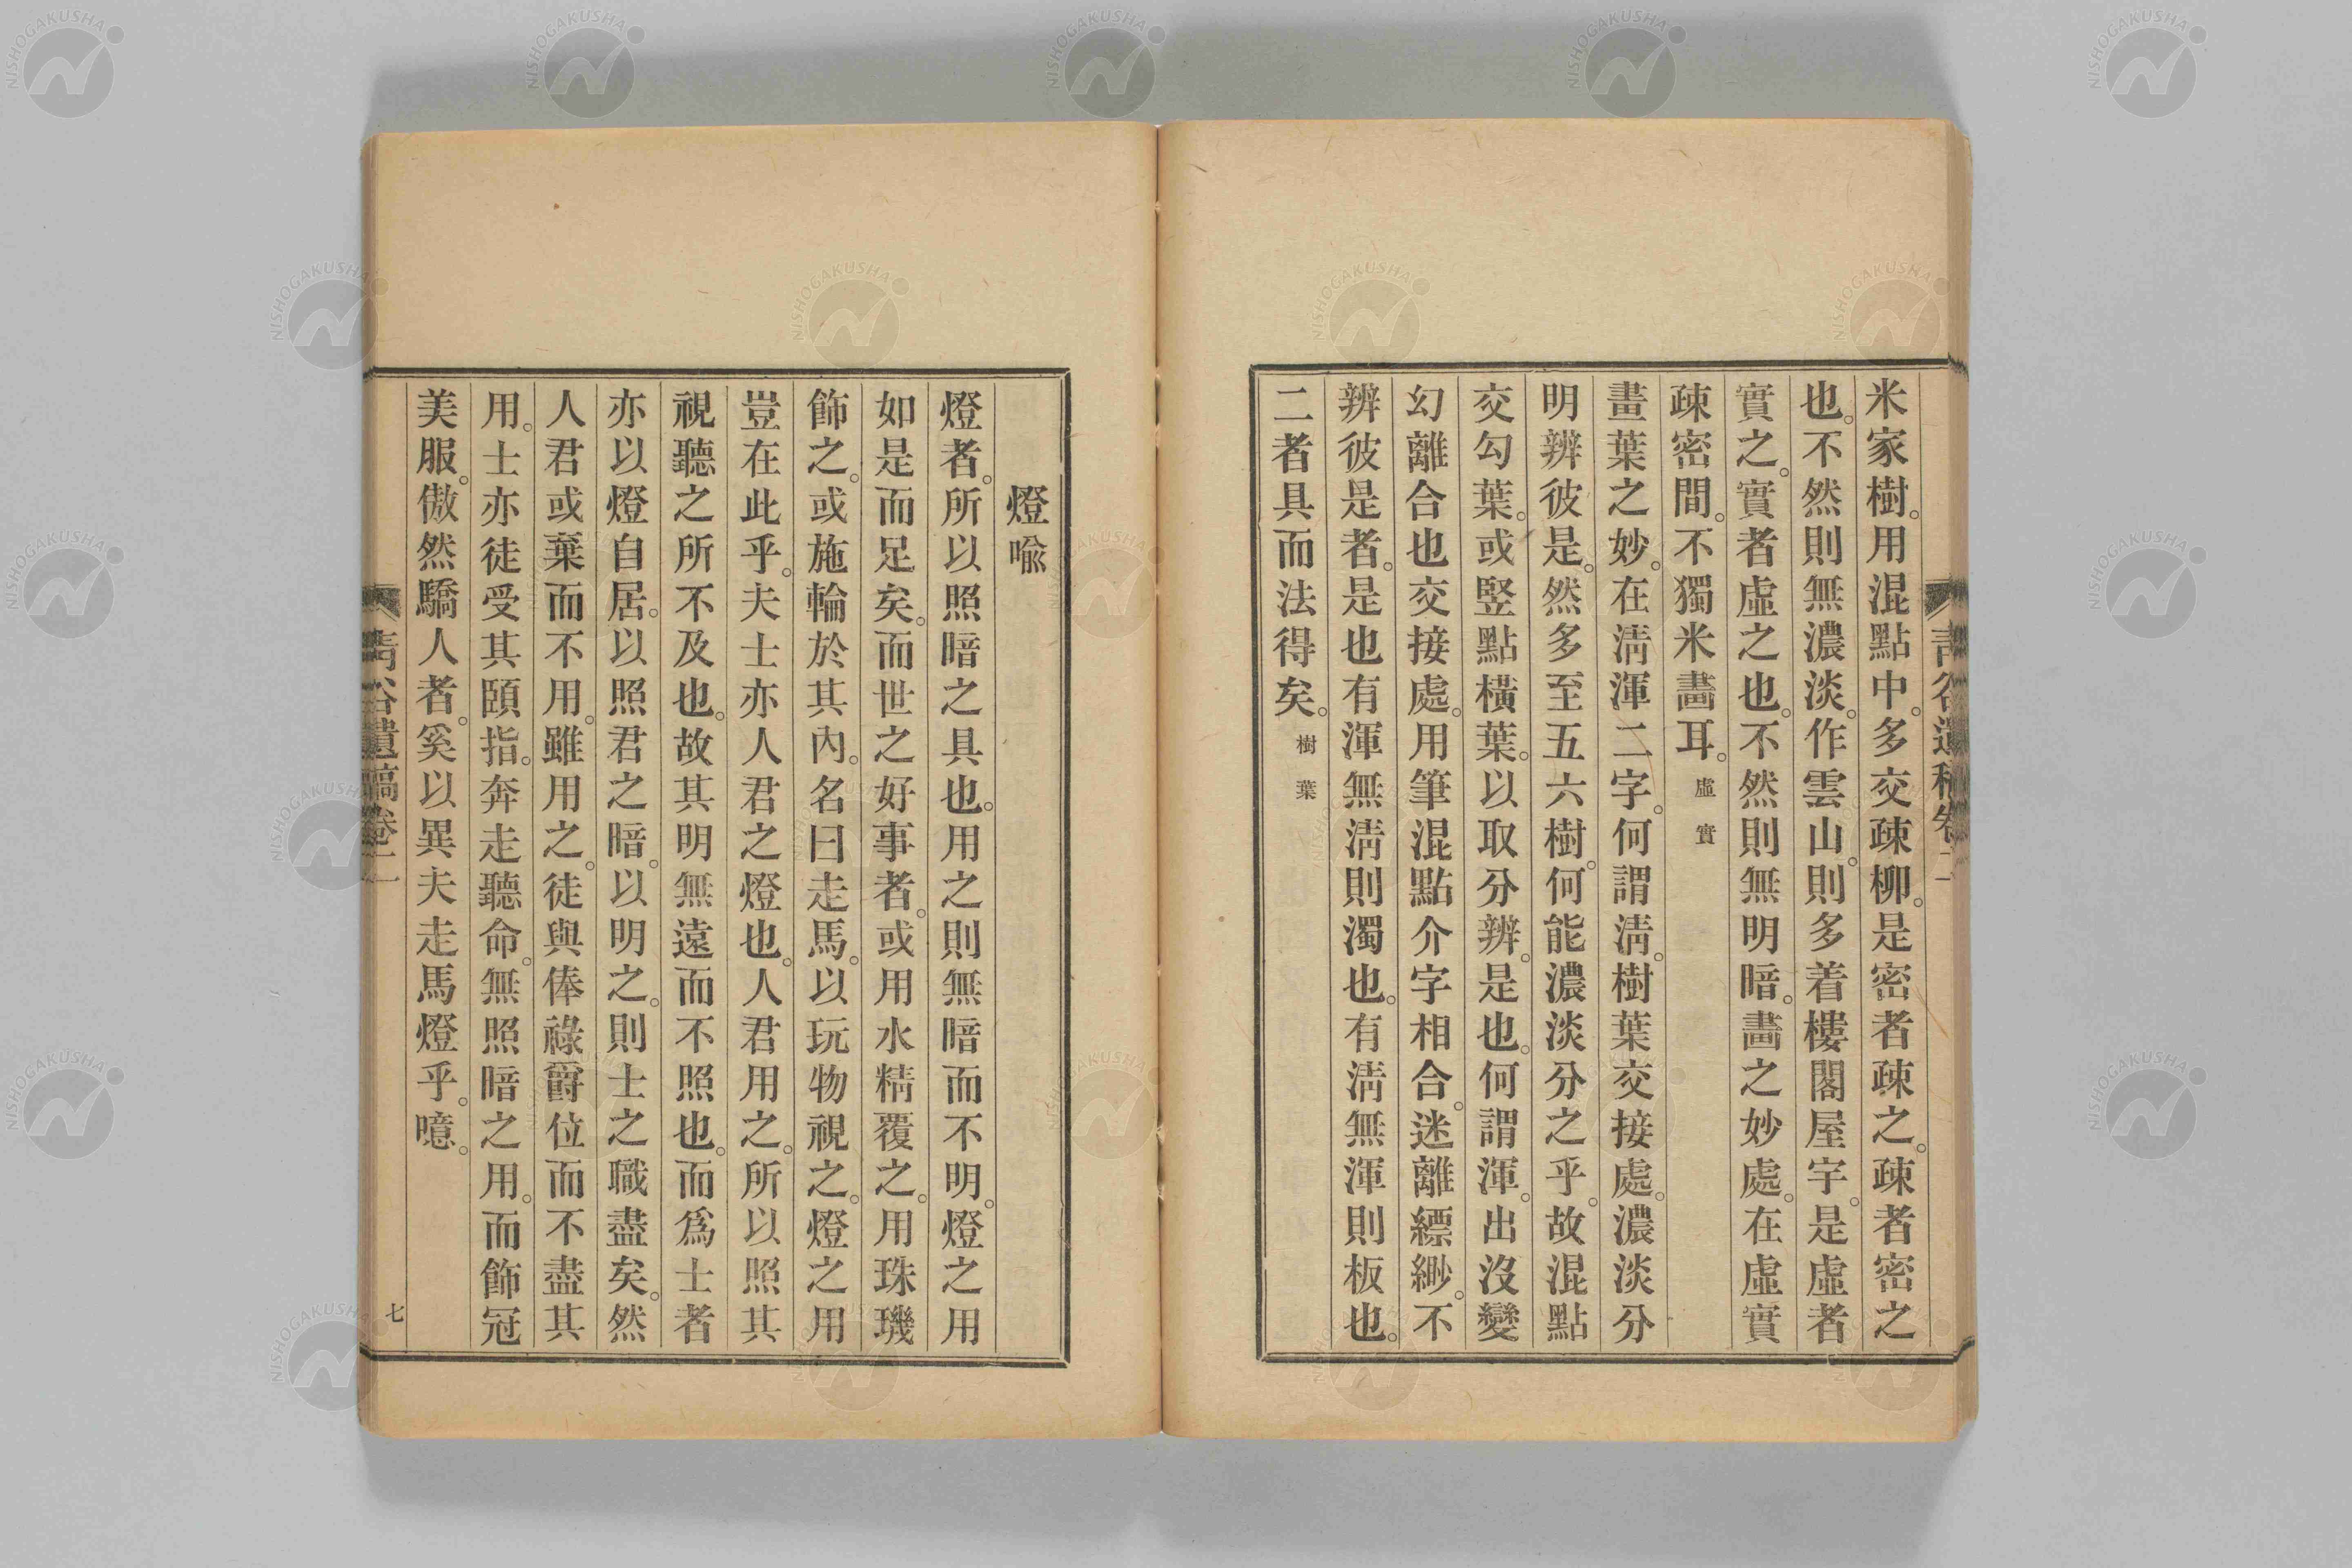 米家樹。用混點中。多交疎柳。是密者疎之。疎者密之
也。不然則無濃淡。作雲山。則多着樓閣屋宇。是虛者
實之。實者虛之也。不然則無明暗。畵之妙處。在虛實
疎密間。不獨米畵耳。虛實
畫葉之妙。在淸渾二字。何謂淸。樹葉交接處。濃淡分
明辨彼是。然多至五六樹。何能濃淡分之乎。故混點
交勾葉。或竪點橫葉。以取分辨。是也。何謂渾。出沒變
幻離合也交接處。用筆混點介字相合。迷離縹緲。不
辨彼是者。是也有渾無淸則濁也。有淸無渾則板也。
二者具而法得矣。樹葉
燈喩
燈者。所以照暗之具也。用之則無暗而不明。燈之用
如是而足矣。而世之好事者。或用水精覆之。用珠璣
飾之。或施輪於其內。名曰走馬。以玩物視之。燈之用
豈在此乎。夫士亦人君之燈也。人君用之。所以照其
視聽之所不及也。故其明無遠而不照也。而爲士者
亦以燈自居。以照君之暗。以明之。則士之職盡矣。然
人君或棄而不用。雖用之。徒與俸祿爵位而不盡其
用。士亦徒受其頤指。奔走聽命。無照暗之用。而飾冠
美服。傲然驕人者。奚以異夫走馬燈乎。噫。
靑谷遺稿卷二
七
NISHOGAKUSHA